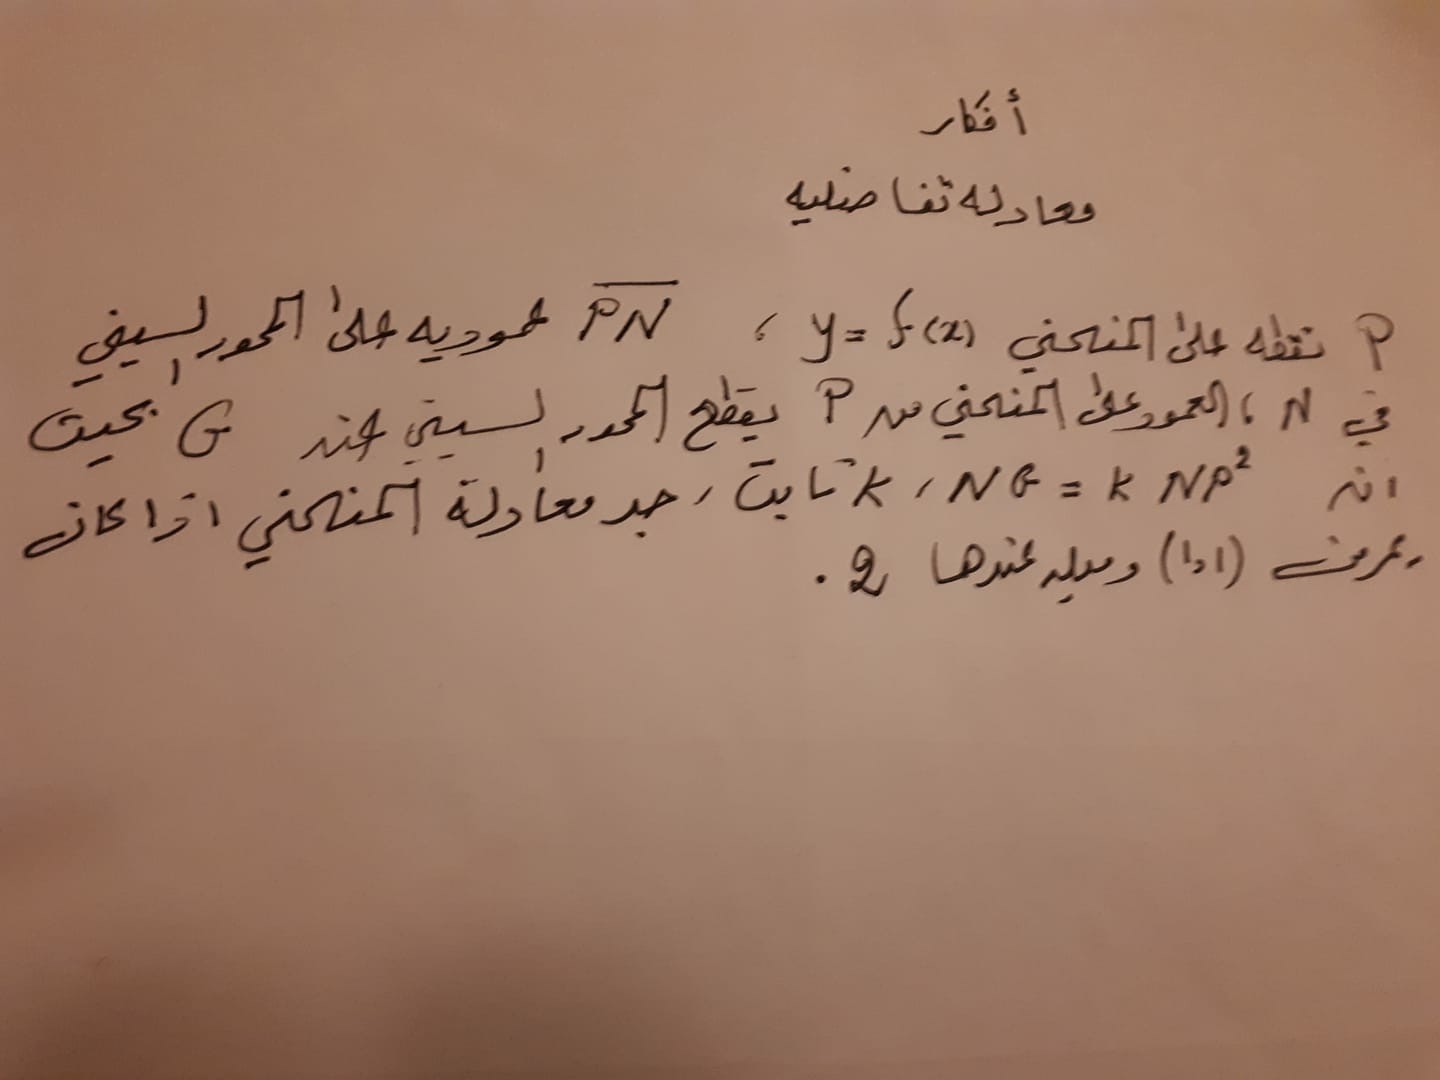 أفكار
معادله تفاضليه
P نقطه على المنحني y = f(x) ، PN عموديه على المحور السيني
في N ، العمود على المنحني من P يقطع المحور السيني عند G بحيث
ان NG = k NP² ، k ثابت ، جد معادلة المنحني اذا كان
يمر من (1,1) وميله عندها 2 .